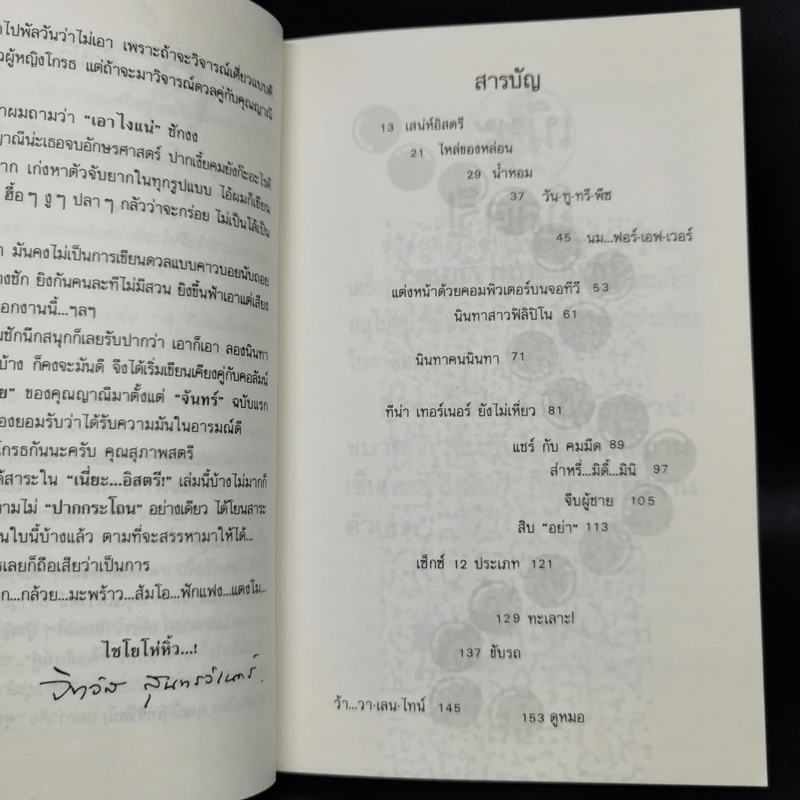 ไปพัลวันว่าไม่เอา เพราะถ้าจะวิจารณ์เดี่ยวแบบดี
ผู้หญิงโกรธ แต่ถ้าจะมาวิจารณ์ดวลคู่กับคุณญาณี
ผมถามว่า "เอาไงแน่" ชักงง
ญาณีน่ะเธอจบอักษรศาสตร์ ปากเงี้ยคมยังก๊ะอะไรดี
าก เก่งหาตัวจับยากในทุกรูปแบบ ไอ้ผมก็เขียน
ฮื้อๆ งูๆ ปลาๆ กลัวว่าจะกร่อย ไม่เป็นโล้เป็น
มันคงไม่เป็นการเขียนดวลแบบคาวบอยนับถอย
างชัก ยิงกันคนละทีไม่มีสวน ยิงขึ้นฟ้าเอาแต่เสียง
อกงานนี้...ๆลๆ
มชักนึกสนุกก็เลยรับปากว่า เอาก็เอา ลองนินทา
บ้าง ก็คงจะมันดี จึงได้เริ่มเขียนเคียงคู่กับคอลัมน์
ย" ของคุณญาณีมาตั้งแต่ "จันทร์" ฉบับแรก
องยอมรับว่าได้รับความมันในอารมณ์ดี
โกรธกันนะครับ คุณสุภาพสตรี
ได้สาระใน "เนี่ยะ...อิสตรี!" เล่มนี้บ้างไม่มากก็
ามไม่ "ปากกระโถน" อย่างเดียว ได้โยนสาระ
นใบนี้บ้างแล้ว ตามที่จะสรรหามาให้ได้...
รเลยก็ถือเสียว่าเป็นการ
ก...กล้วย...มะพร้าว...ส้มโอ...ฟักแฟง...แตงโม...
ไชโยโห่หิ้ว...!
สารบัญ
13 เสน่ห์อิสตรี
21 ไหล่ของหล่อน
29 น้ำหอม
37 วัน-ทู-ทรี-พีช
45 นม...ฟอร์-เอฟ-เวอร์
แต่งหน้าด้วยคอมพิวเตอร์บนจอทีวี 53
นินทาสาวฟิลิปิโน 61
นินทาคนนินทา 71
ทีน่า เทอร์เนอร์ ยังไม่เหี่ยว 81
แชร์ กับ คมมีด 89
ส่าหรี่...มิดี้...มินิ 97
จีบผู้ชาย 105
สิบ "อย่า" 113
เซ็กซ์ 12 ประเภท 121
129 ทะเลาะ!
137 ขับรถ
ว้า...วา-เลน-ไทน์ 145
153 ดูหมอ